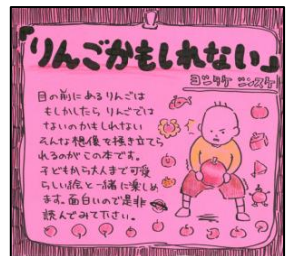 『りんごかもしれない』
ヨシタケ シンスケ
目の前にあるりんごは
もしかしたら りんごでは
ないのかもしれない
そんな想像を掻き立てら
れるのがこの本です。
子どもから大人まで可愛
らしい絵と一緒に楽しめ
ます。面白いので是非
読んでみて下さい。